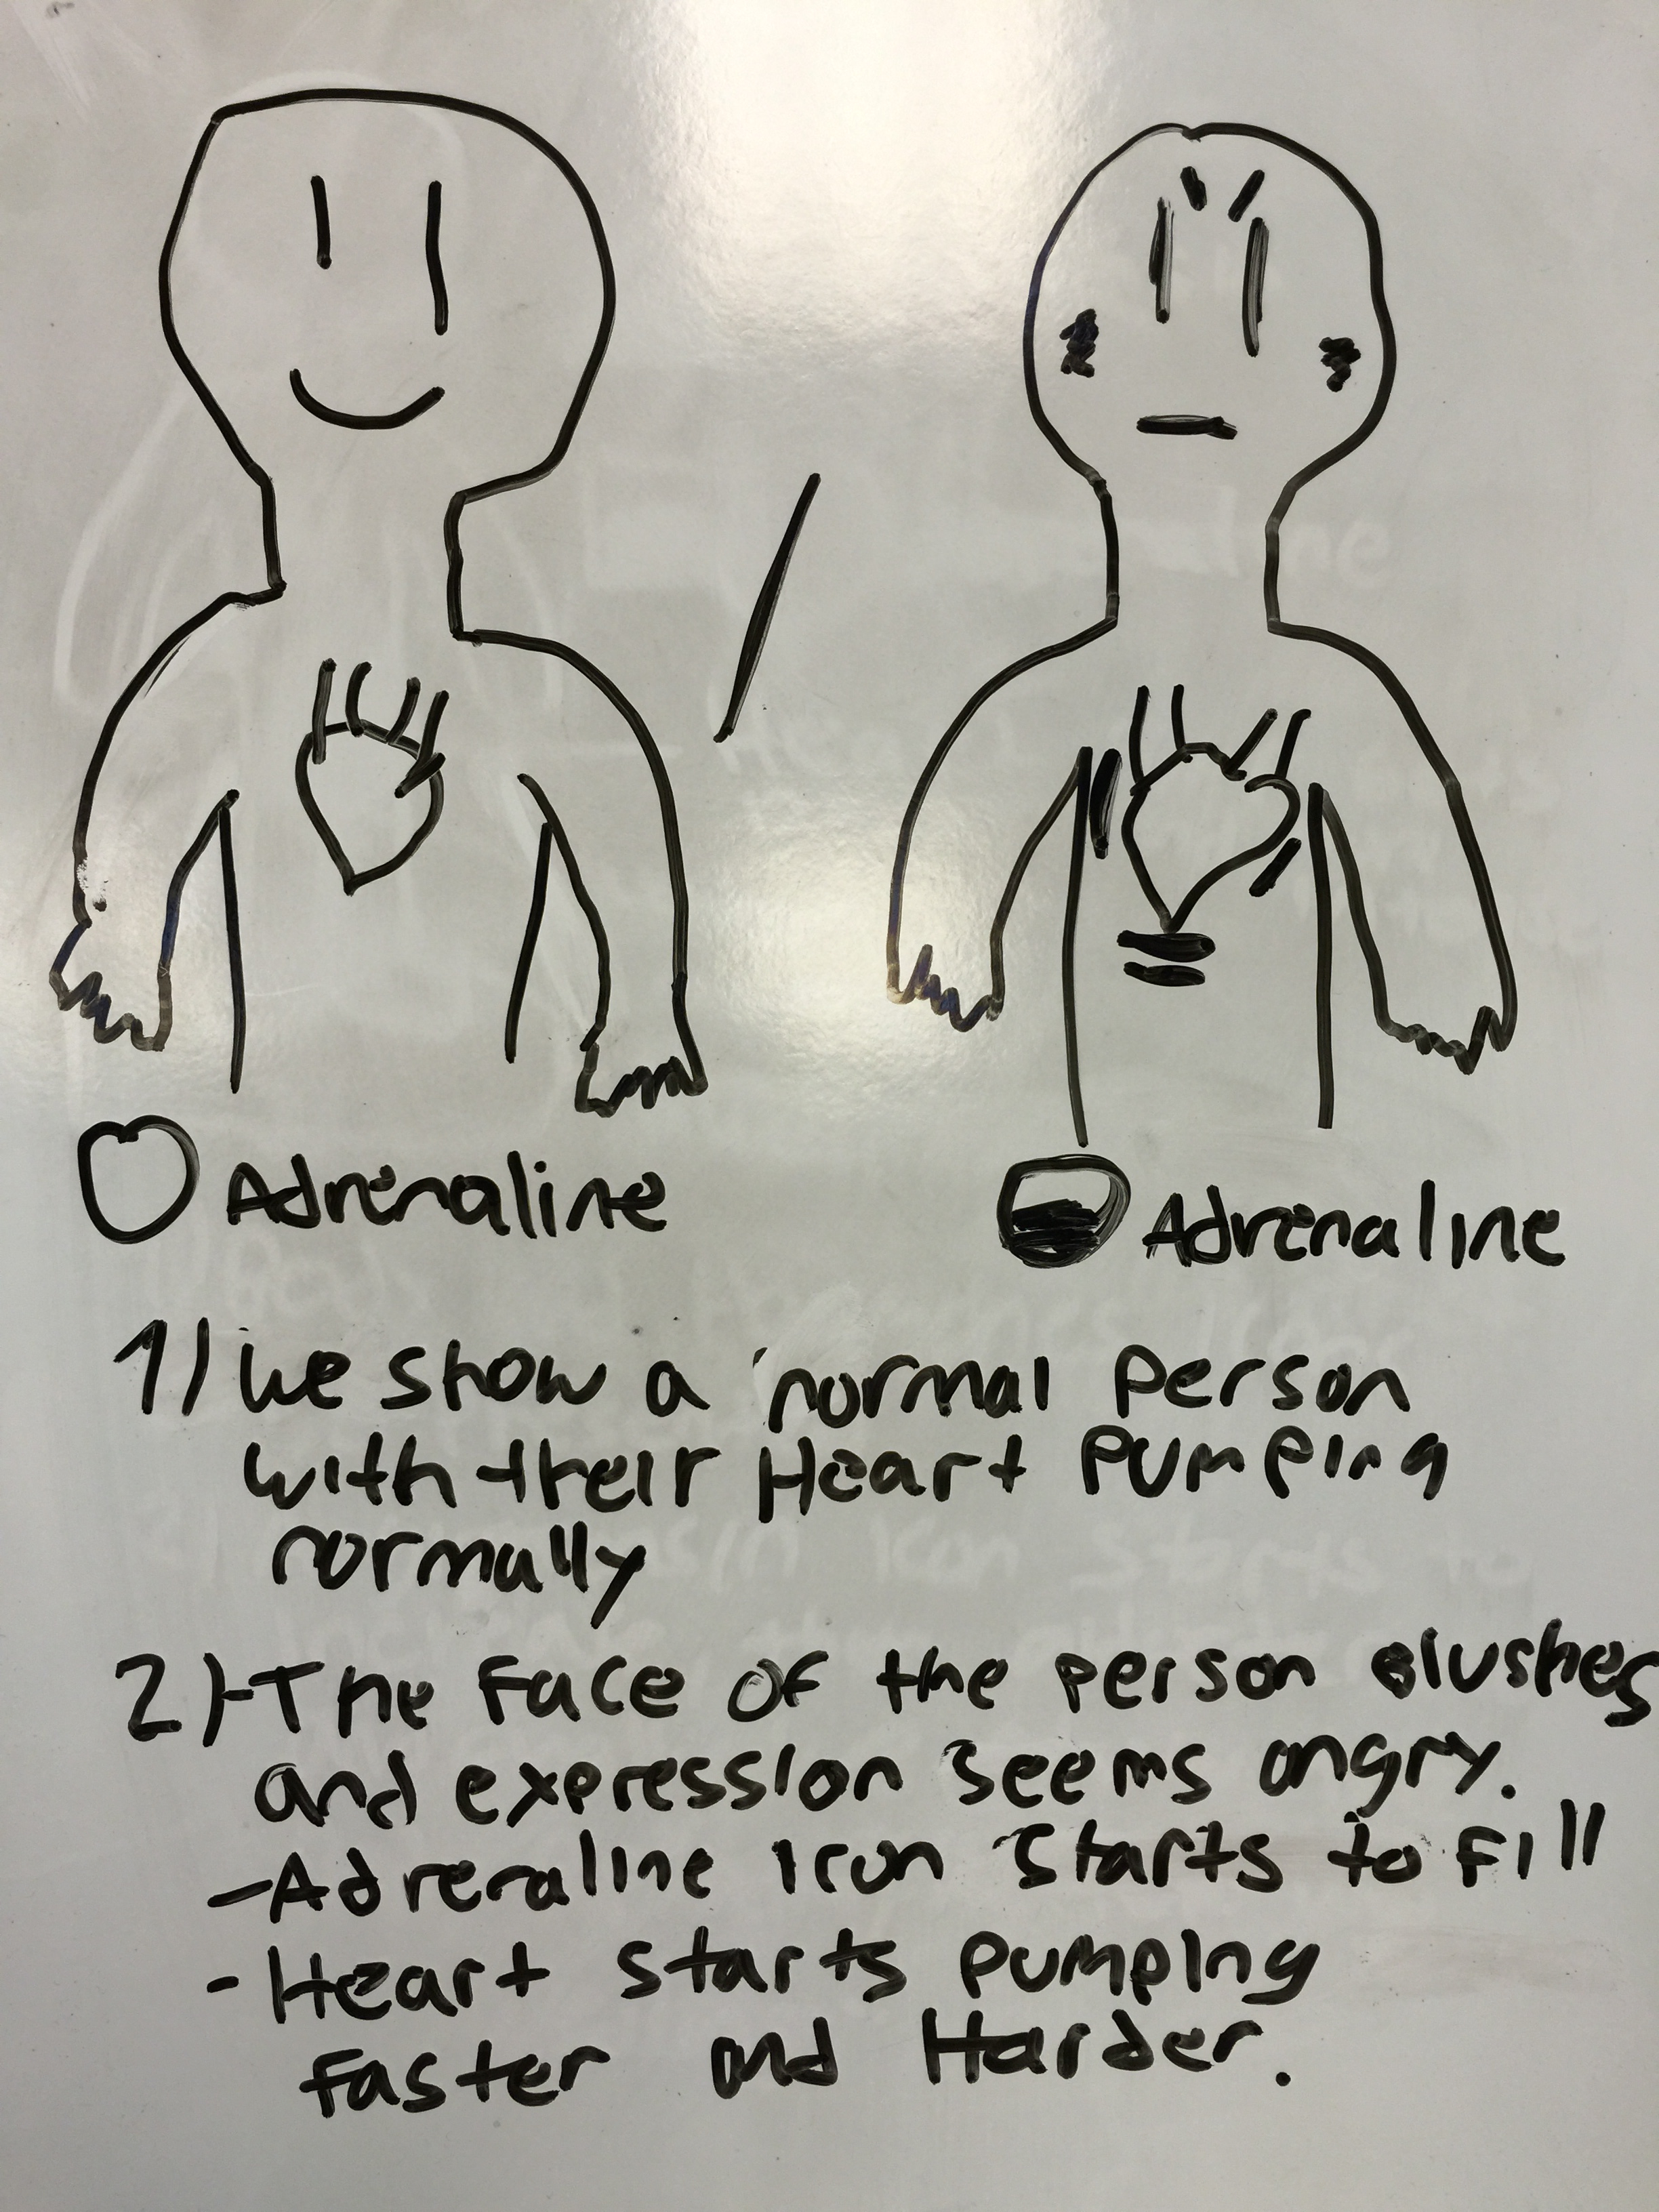 Adrenaline
Adrenaline
1) We show a normal Person
with their Heart Pumping
normally
2) - The Face OF the person blushes
and expression seems angry.
- Adrenaline Icon Starts to Fill
- Heart starts pumping
Faster and Harder.